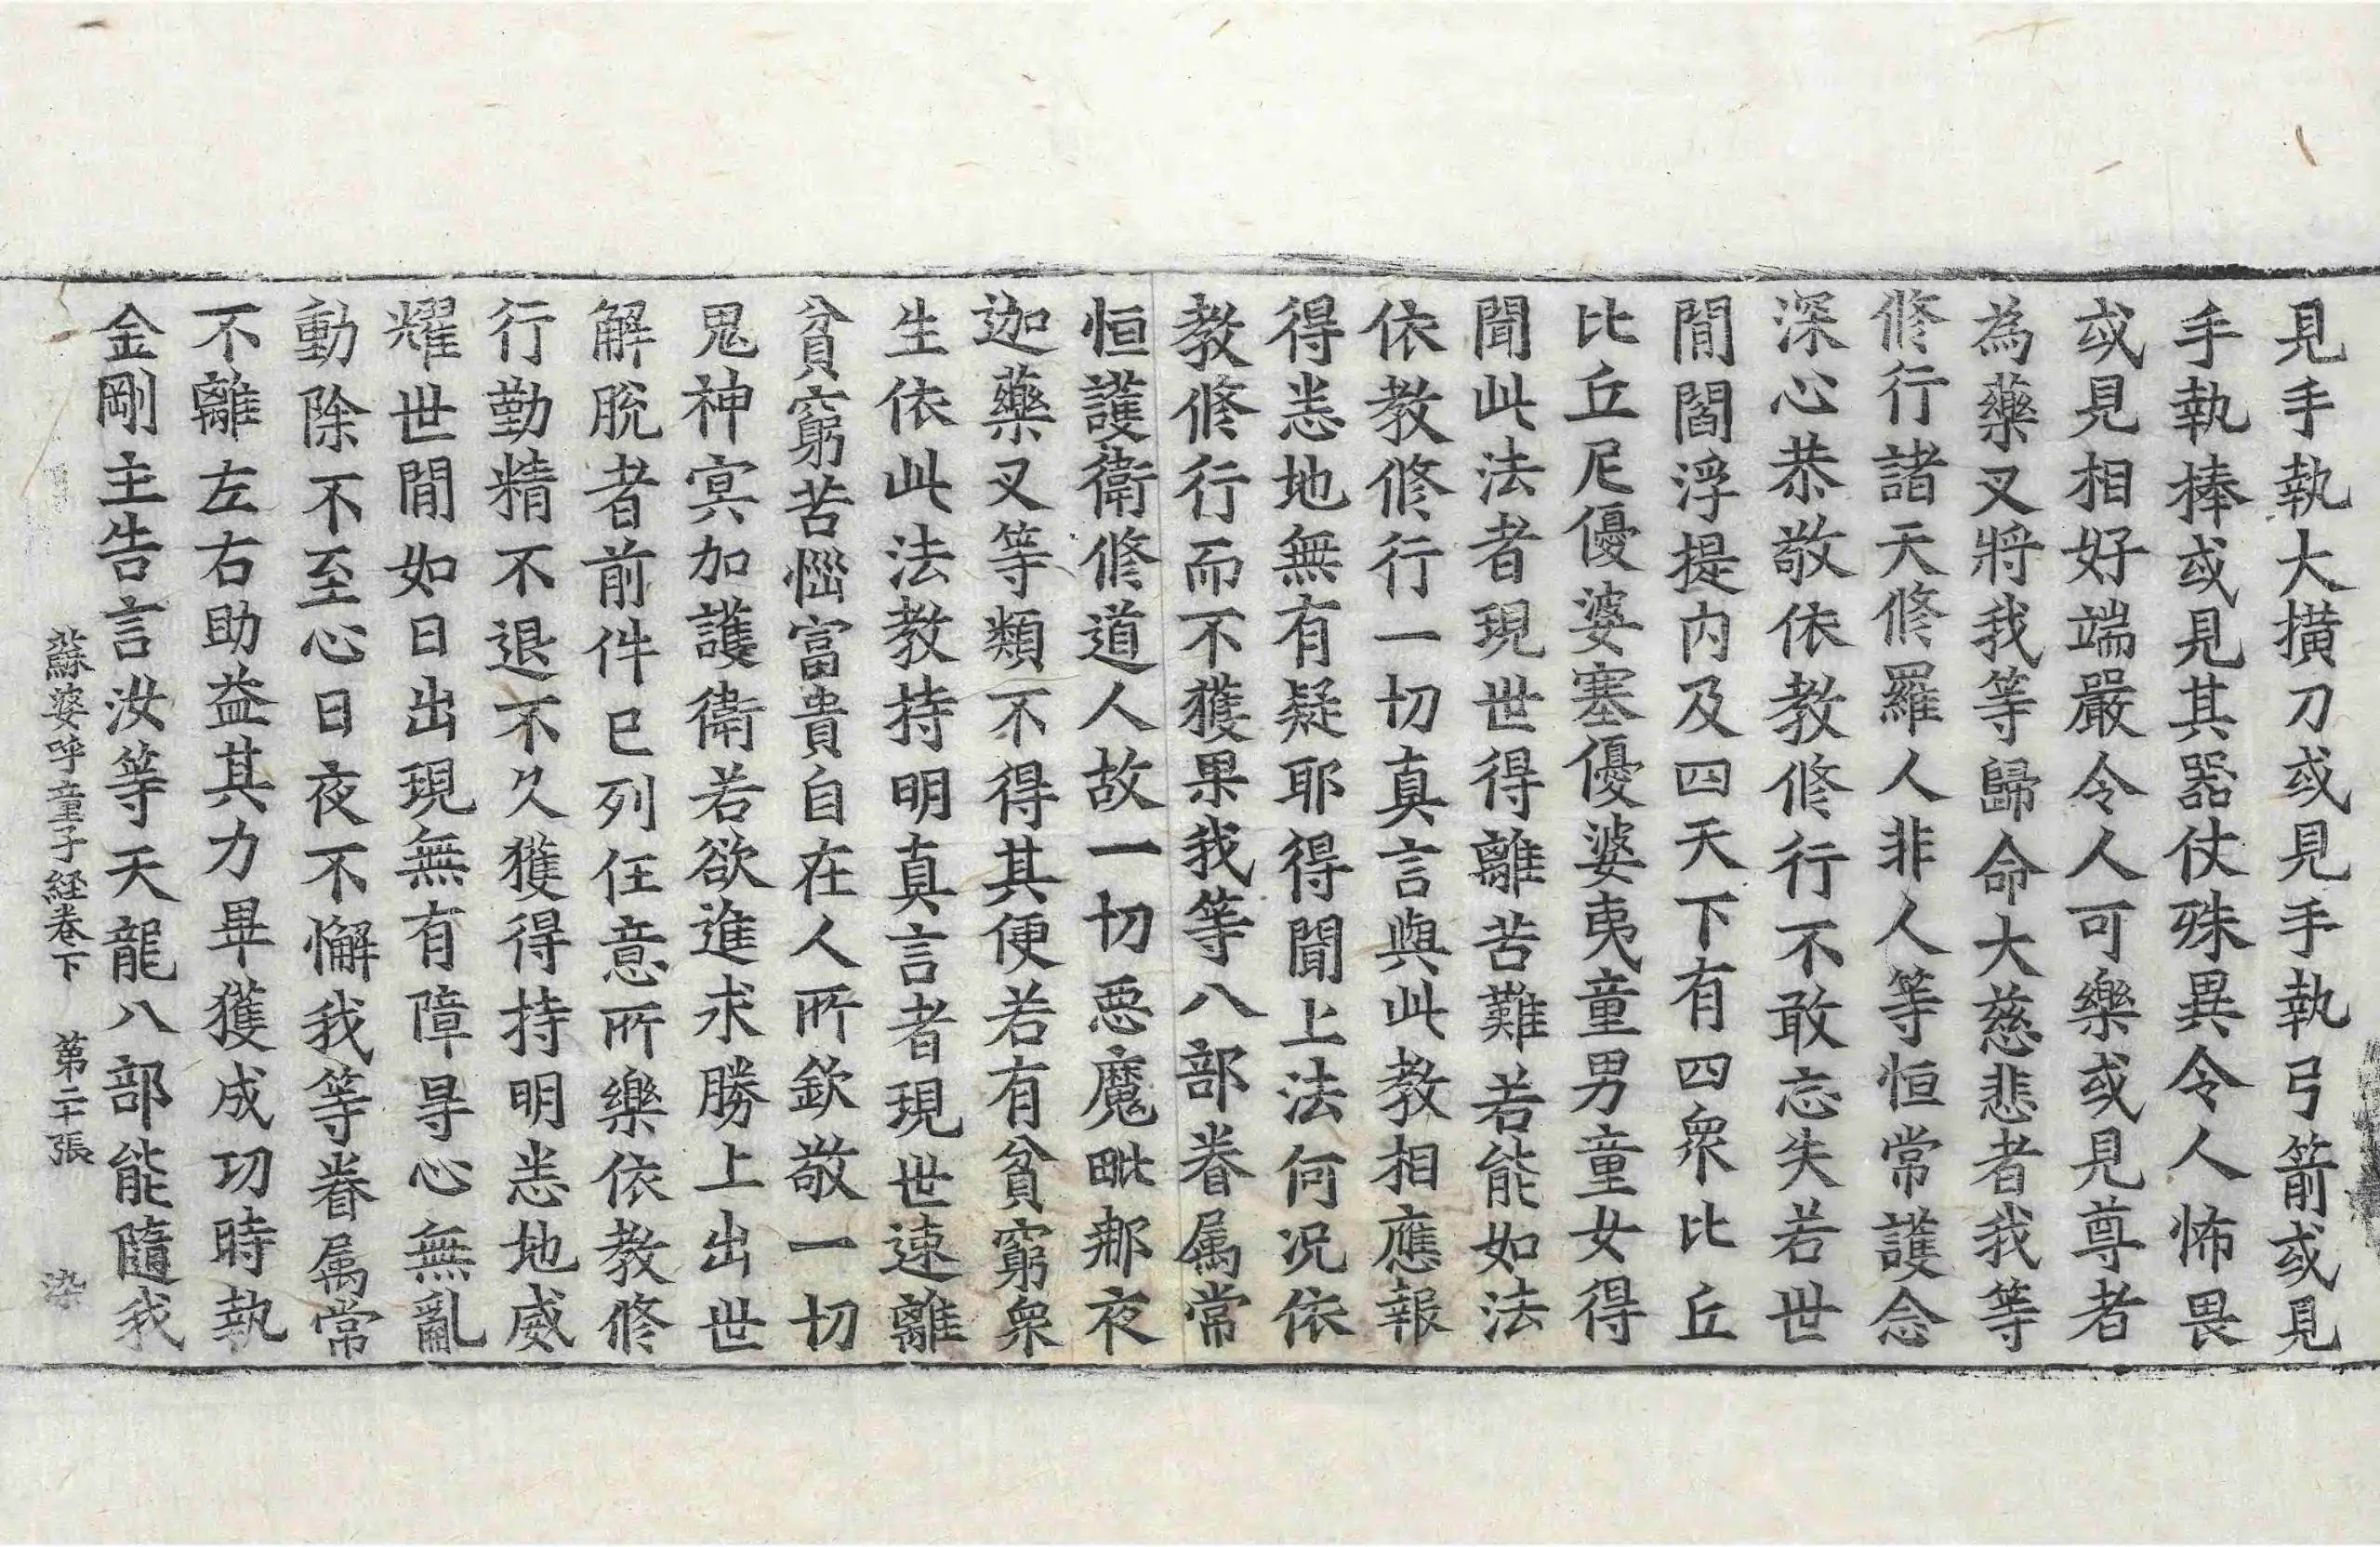 見手執大擴刀或見手執弓箭或見
手執捧或見其器仗殊異令人怖畏
或見相好端嚴令人可樂或見尊者
為藥叉將我等歸命大慈悲者我等
修行諸天修羅人非人等恒常護念
深心恭敬依教修行不敢忘失若世
閒閻浮提內及四天下有四衆比丘
比丘尼優婆塞優婆夷童男童女得
聞此法者現世得離苦難若能如法
依教修行一切真言與此教相應報
得悉地無有疑耶得聞上法何况依
教修行而不獲果我等八部眷属常
恒護衛修道人故一切惡魔毗那夜
迦藥叉等類不得其便若有貧窮衆
生依此法教持明真言者現世速離
貧窮苦惱富貴自在人所欽敬一切
鬼神冥加護衛若欲進求勝上出世
解脫者前件已列任意所樂依教修
行勤精不退不久獲得持明悉地威
耀世閒如日出現無有障㝵心無亂
動除不至心日夜不懈我等眷属常
不離左右助益其力畢獲成功時執
金剛主告言汝等天龍八部能隨我
蘇婆呼童子経卷下 第二十張 染